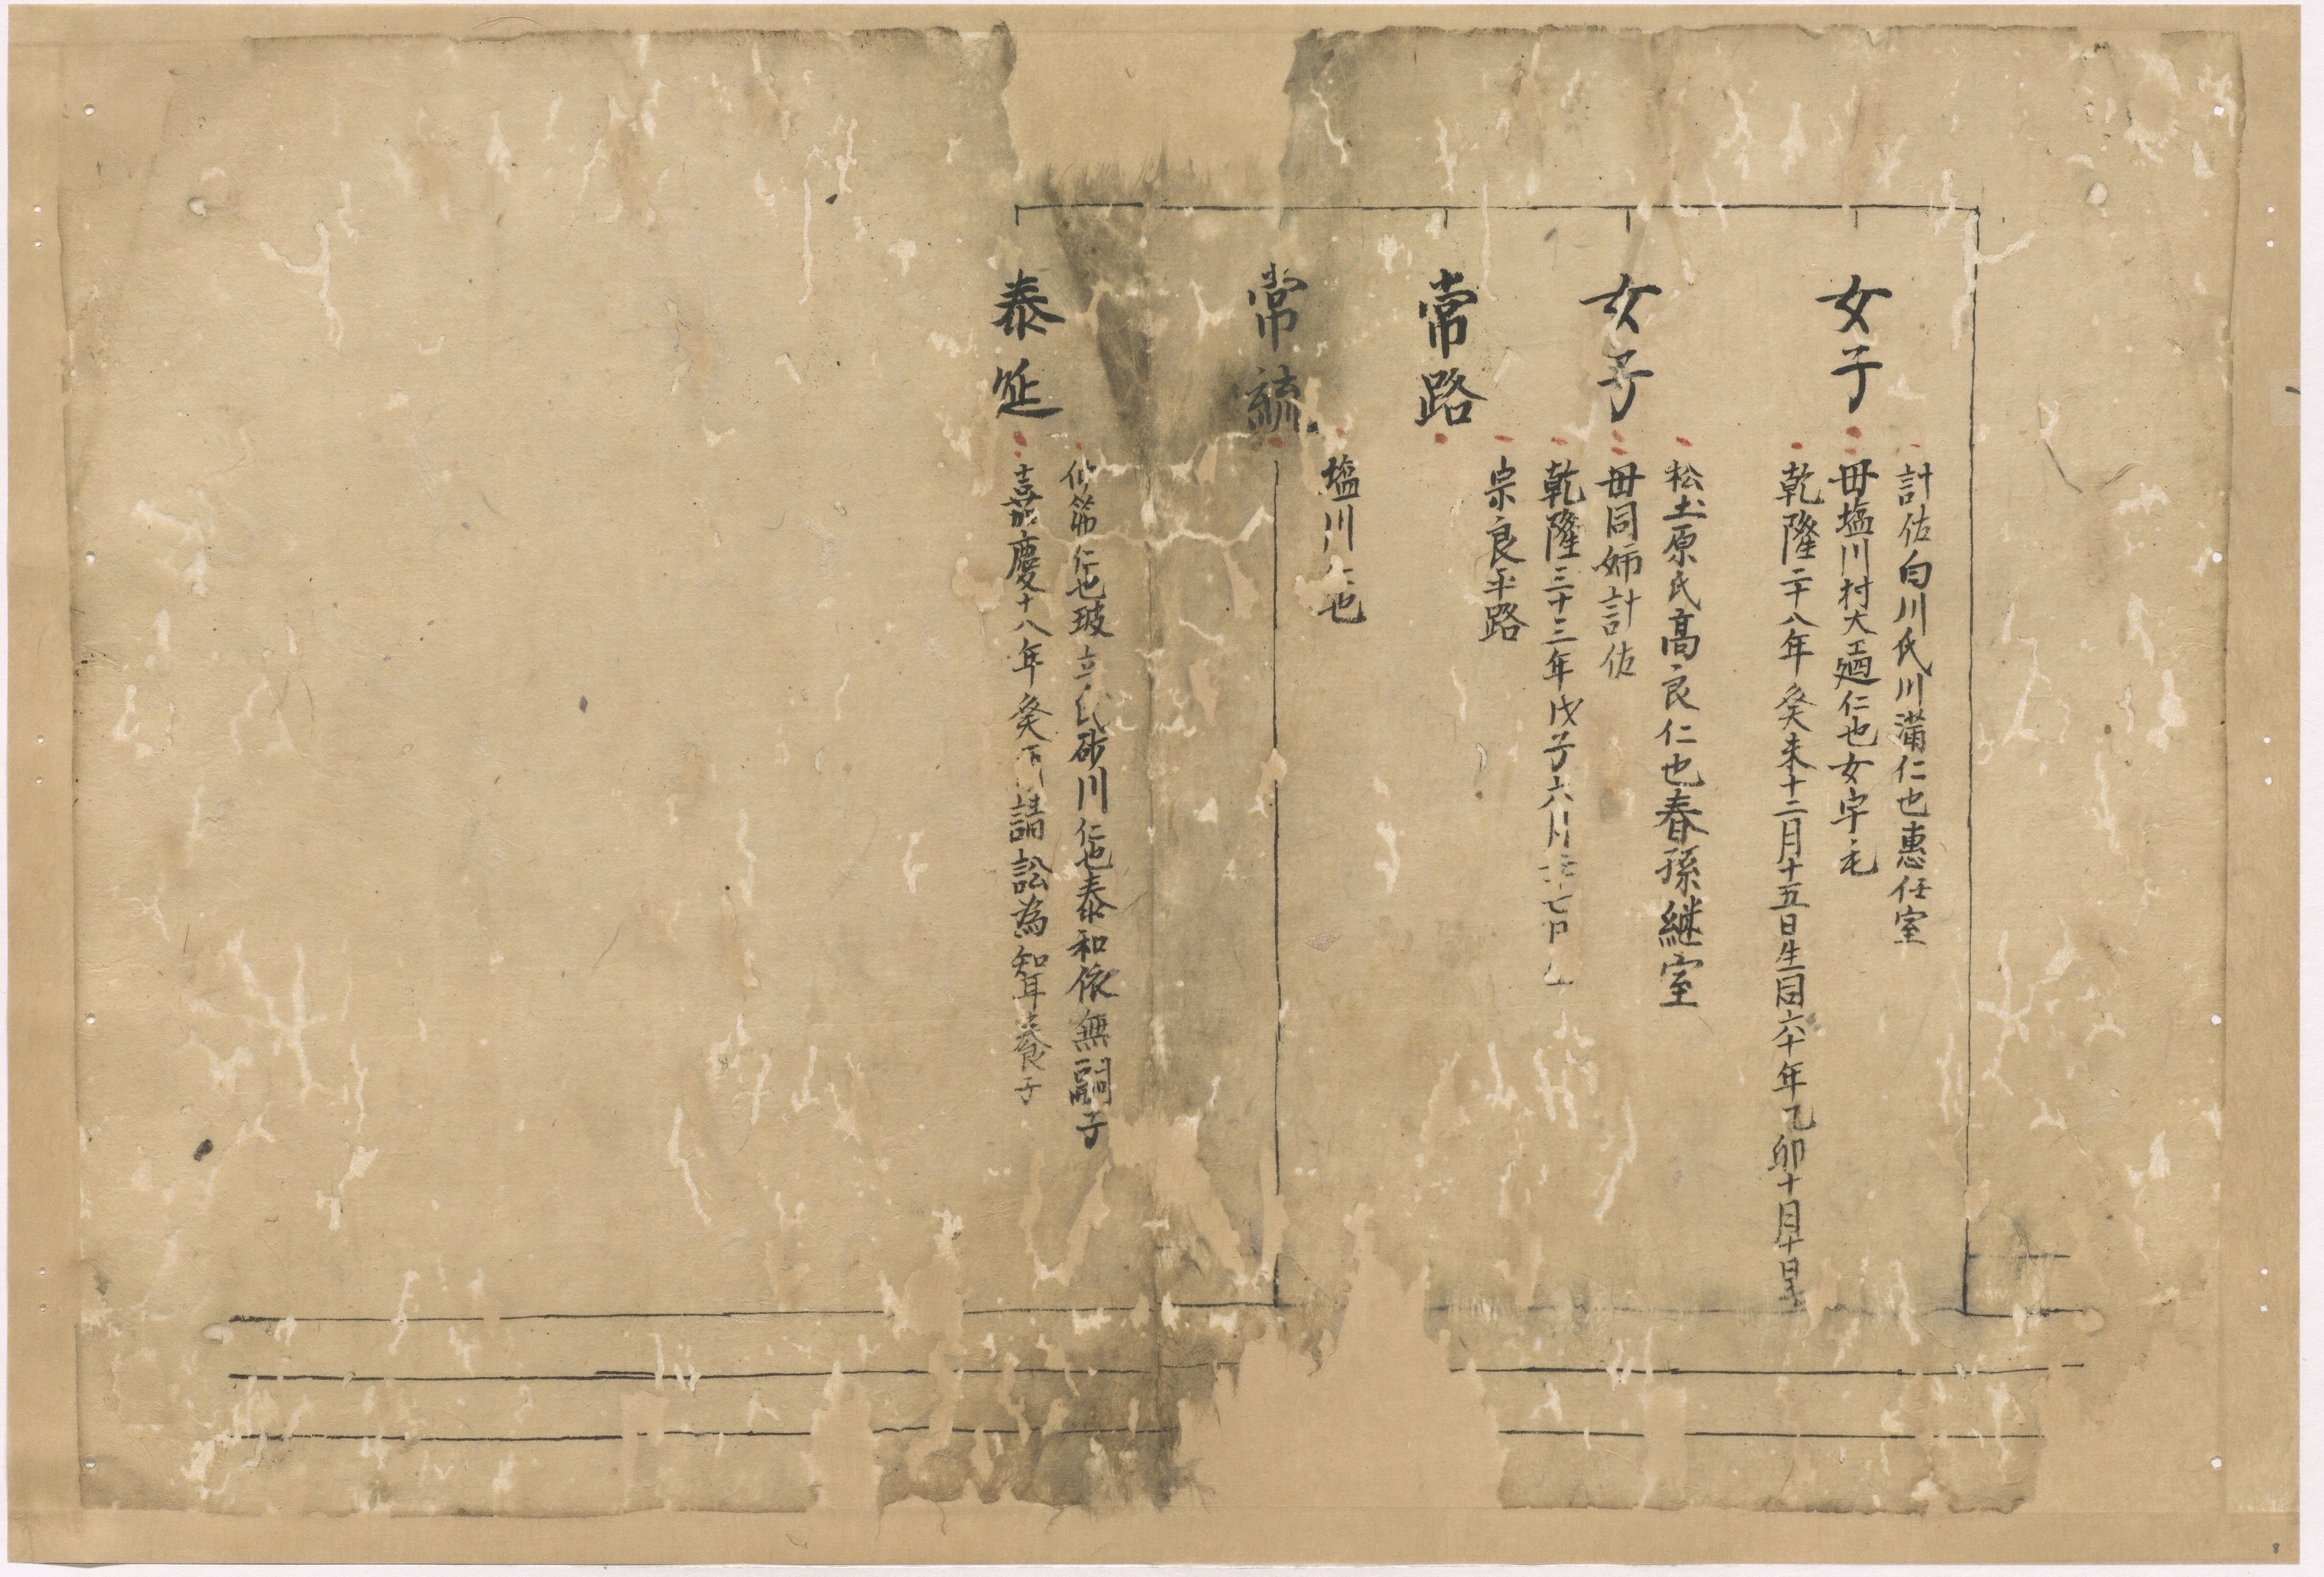 計佐白川氏川満仁也恵任室
女子
毋塩川村大工廻仁也女字毛
乾隆二十八年癸未十二月十五日生同六十年乙卯十月十日
松土原氏高良仁也春孫継室
女子
毋同姉計佐
乾隆三十三年戊子六月
宗良平路
常路
塩川仁也
常
筑仁也玻立氏砂川仁也泰和依無嗣子
泰延
嘉慶十八年癸酉請訟為知耳養子
8